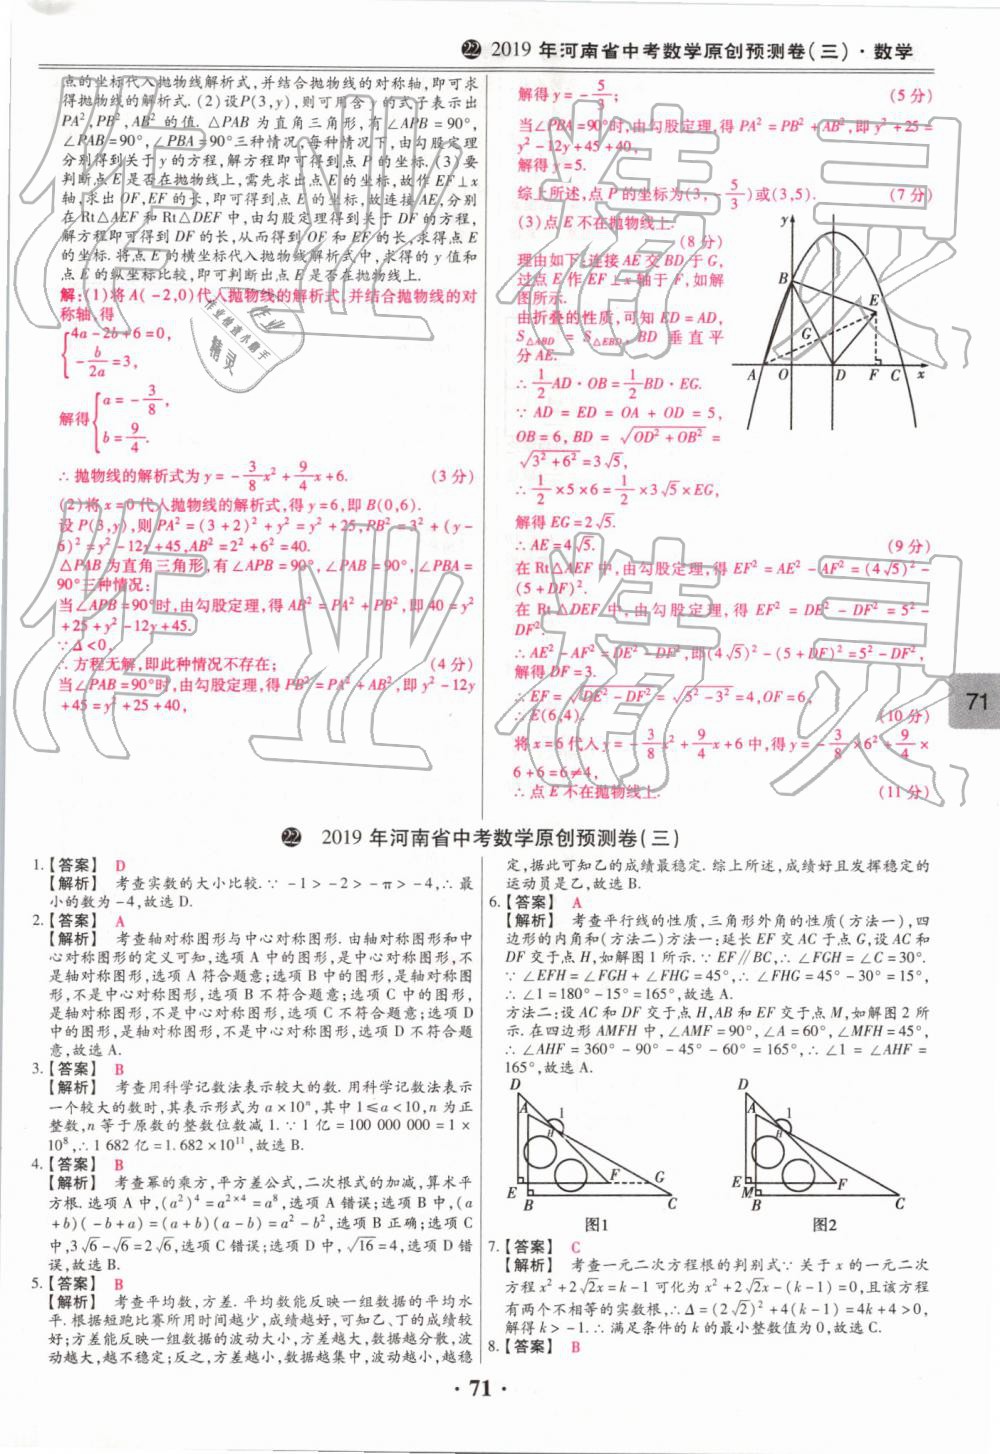 ㉒ 2019年河南省中考数学原创预测卷(三)·数学
点的坐标代入抛物线解析式,并结合抛物线的对称轴,即可求
得抛物线的解析式.(2)设P(3,y),则可用含y的式子表示出
PA²,PB²,AB²的值.△PAB为直角三角形,有∠APB=90°,
∠PAB=90°,∠PBA=90°三种情况,每种情况下,由勾股定理
分别得到关于y的方程,解方程即可得到点P的坐标.(3)要
判断点E是否在抛物线上,需先求出点E的坐标,故作EF⊥x
轴,求出OF,EF的长,即可得到点E的坐标,故连接AE,分别
在Rt△AEF和Rt△DEF中,由勾股定理得到关于DF的方程,
解方程即可得到DF的长,从而得到OF和EF的长,求得点E
的坐标.将点E的横坐标代入抛物线解析式中,求得的y值和
点E的纵坐标比较,即可判断出点E是否在抛物线上.
解:(1)将A(-2,0)代入抛物线的解析式,并结合抛物线的对
称轴,得
{4a-2b+6=0,
-b/2a=3,
解得{a=-3/8,
b=9/4.
∴抛物线的解析式为y=-3/8x²+9/4x+6. (3分)
(2)将x=0代入抛物线的解析式,得y=6,即B(0,6).
设P(3,y),则PA²=(3+2)²+y²=y²+25,PB²=3²+(y-
6)²=y²-12y+45,AB²=2²+6²=40.
△PAB为直角三角形,有∠APB=90°,∠PAB=90°,∠PBA=
90°三种情况:
当∠APB=90°时,由勾股定理,得AB²=PA²+PB²,即40=y²
+25+y²-12y+45.
∵Δ<0,
∴方程无解,即此种情况不存在; (4分)
当∠PAB=90°时,由勾股定理,得PB²=PA²+AB²,即y²-12y
+45=y²+25+40,
解得y=-5/3; (5分)
当∠PBA=90°时,由勾股定理,得PA²=PB²+AB²,即y²+25=
y²-12y+45+40,
解得y=5.
综上所述,点P的坐标为(3,-5/3)或(3,5). (7分)
(3)点E不在抛物线上.
(8分)
理由如下:连接AE交BD于G,
过点E作EF⊥x轴于F,如解
图所示.
由折叠的性质,可知ED=AD,
S△ABD=S△EBD,BD垂直平
分AE.
∴1/2AD·OB=1/2BD·EG.
∵AD=ED=OA+OD=5,
OB=6,BD=√OD²+OB²=
√3²+6²=3√5,
∴1/2×5×6=1/2×3√5×EG,
解得EG=2√5.
∴AE=4√5. (9分)
在Rt△AEF中,由勾股定理,得EF²=AE²-AF²=(4√5)²-
(5+DF)².
在Rt△DEF中,由勾股定理,得EF²=DE²-DF²=5²-
DF².
∴AE²-AF²=DE²-DF²,即(4√5)²-(5+DF)²=5²-DF²,
解得DF=3.
∴EF=√DE²-DF²=√5²-3²=4,OF=6,
∴E(6,4). (10分)
将x=6代入y=-3/8x²+9/4x+6中,得y=-3/8×6²+9/4×
6+6=6≠4,
∴点E不在抛物线上. (11分)
y
B
E
G
A
O
D
F
C
x
71
㉒ 2019年河南省中考数学原创预测卷(三)
1.【答案】 D
【解析】 考查实数的大小比较.∵-1>-2>-π>-4,∴最
小的数为-4,故选D.
2.【答案】 A
【解析】 考查轴对称图形与中心对称图形.由轴对称图形和中
心对称图形的定义可知,选项A中的图形,是中心对称图形,不
是轴对称图形,选项A符合题意;选项B中的图形,是轴对称图
形,不是中心对称图形,选项B不符合题意;选项C中的图形,
是轴对称图形,不是中心对称图形,选项C不符合题意;选项D
中的图形,是轴对称图形,不是中心对称图形,选项D不符合题
意,故选A.
3.【答案】 B
【解析】 考查用科学记数法表示较大的数.用科学记数法表示
一个较大的数时,其表示形式为a×10ⁿ,其中1≤a<10,n为正
整数,n等于原数的整数位数减1.∵1亿=100 000 000=1×
10⁸,∴1 682亿=1.682×10¹¹,故选B.
4.【答案】 B
【解析】 考查幂的乘方,平方差公式,二次根式的加减,算术平
方根.选项A中,(a²)⁴=a²ˣ⁴=a⁸,选项A错误;选项B中,(a
+b)(-b+a)=(a+b)(a-b)=a²-b²,选项B正确;选项C
中,3√6-√6=2√6,选项C错误;选项D中,√16=4,选项D错
误,故选B.
5.【答案】 B
【解析】 考查平均数,方差.平均数能反映一组数据的平均水
平.根据短跑比赛所用时间越少,成绩越好,可知乙、丁的成绩较
好;方差能反映一组数据的波动大小,方差越大,数据越分散,波
动越大,越不稳定;反之,方差越小,数据越集中,波动越小,越稳
定,据此可知乙的成绩最稳定.综上所述,成绩好且发挥稳定的
运动员是乙,故选B.
6.【答案】 A
【解析】 考查平行线的性质,三角形外角的性质(方法一),四
边形的内角和(方法二)方法一:延长EF交AC于点G,设AC和
DF交于点H,如解图1所示.∵EF∥BC,∴∠FGH=∠C=30°.
∵∠EFH=∠FGH+∠FHG=45°,∴∠FHG=45°-30°=15°,
∴∠1=180°-15°=165°,故选A.
方法二:设AC和DF交于点H,AB和EF交于点M,如解图2所
示.在四边形AMFH中,∠AMF=90°,∠A=60°,∠MFH=45°,
∴∠AHF=360°-90°-45°-60°=165°,∴∠1=∠AHF=
165°,故选A.
D
A
1
H
F
G
E
B
C
图1
D
A
1
H
F
E
M
B
C
图2
7.【答案】 C
【解析】 考查一元二次方程根的判别式∵关于x的一元二次
方程x²+2√2x=k-1可化为x²+2√2x-(k-1)=0,且该方程
有两个不相等的实数根,∴Δ=(2√2)²+4(k-1)=4k+4>0,
解得k>-1.∴满足条件的k的最小整数值为0,故选C.
8.【答案】 B
·71·
作业精灵
作业精灵
作业检查小帮手